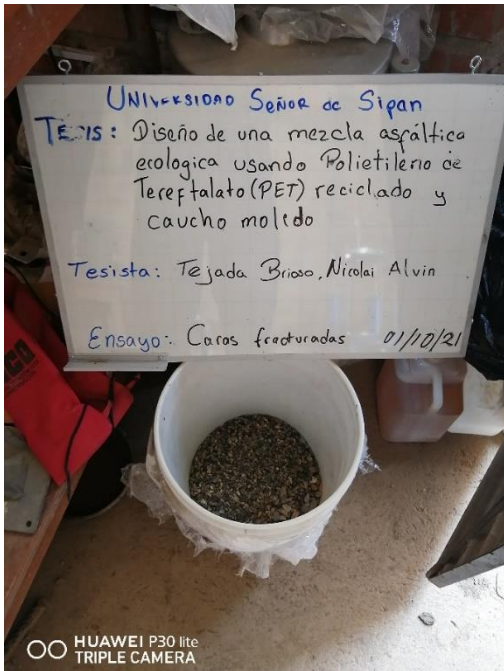 UNIVERSIDAD SEÑOR de Sipan
TESIS: Diseño de una mezcla asfáltica
ecologica usando Polietileno de
Tereftalato (PET) reciclado y
caucho molido
Tesista: Tejada Brioso, Nicolai Alvin
Ensayo: Caras fracturadas 01/10/21
CO
HUAWEI P30 lite
TRIPLE CAMERA